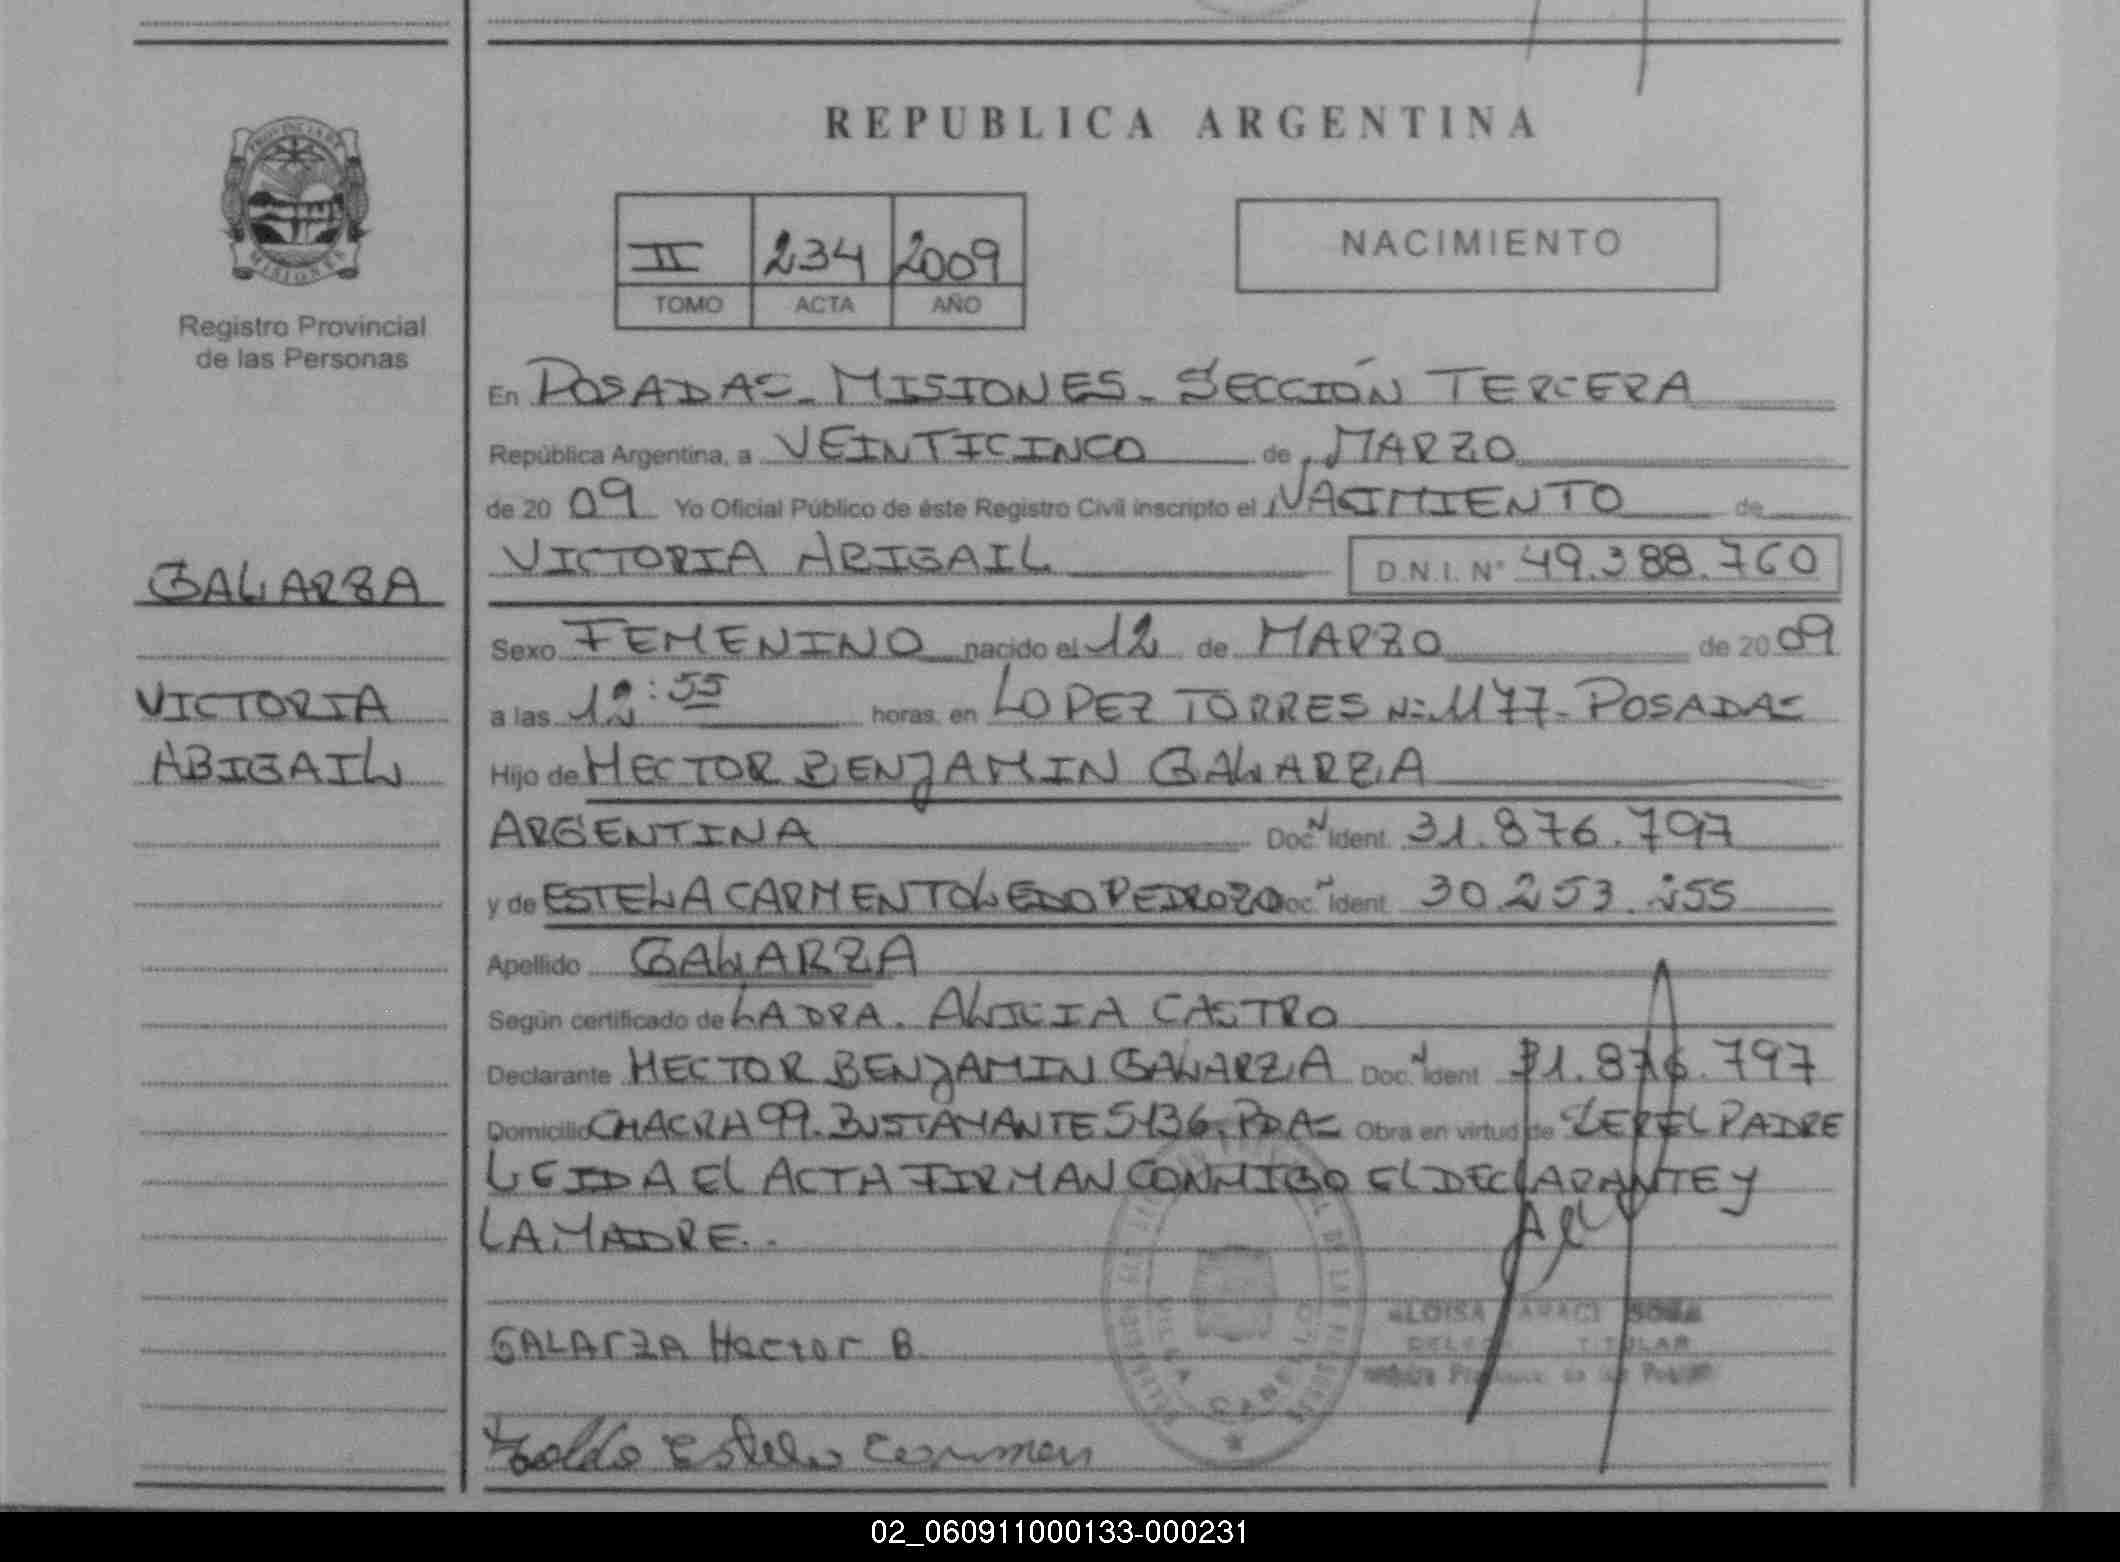 REPUBLICA ARGENTINA
PROVINCIA DE
MISIONES
Registro Provincial
de las Personas
II 234 2009
TOMO ACTA AÑO
NACIMIENTO
GALARZA
VICTORIA
ABIGAIL
En POSADAS - MISIONES - SECCIÓN TERCERA
República Argentina, a VEINTICINCO de MARZO
de 20 09 Yo Oficial Público de éste Registro Civil inscripto el NACIMIENTO de
VICTORIA ABIGAIL D.N.I. N° 49.388.760
Sexo FEMENINO nacido el 12 de MARZO de 20 09
a las 12:55 horas en LOPEZ TORRES Nº 1177 - POSADAS
Hijo de HECTOR BENJAMIN GALARZA
ARGENTINA Doc. N Ident. 31.876.797
y de ESTELA CARMEN TOLEDO PEDROZO Doc. N Ident. 30.253.255
Apellido GALARZA
Según certificado de LA DRA. ALICIA CASTRO
Declarante HECTOR BENJAMIN GALARZA Doc. N Ident 31.876.797
Domicilio CHACRA 99. BUSTAMANTE 5136, PDAS Obra en virtud de SER EL PADRE
LEIDA EL ACTA FIRMAN CONMIGO EL DECLARANTE Y
LA MADRE..
GALArZA Hector B.
Estela Carmen
TITULAR
02_060911000133-000231